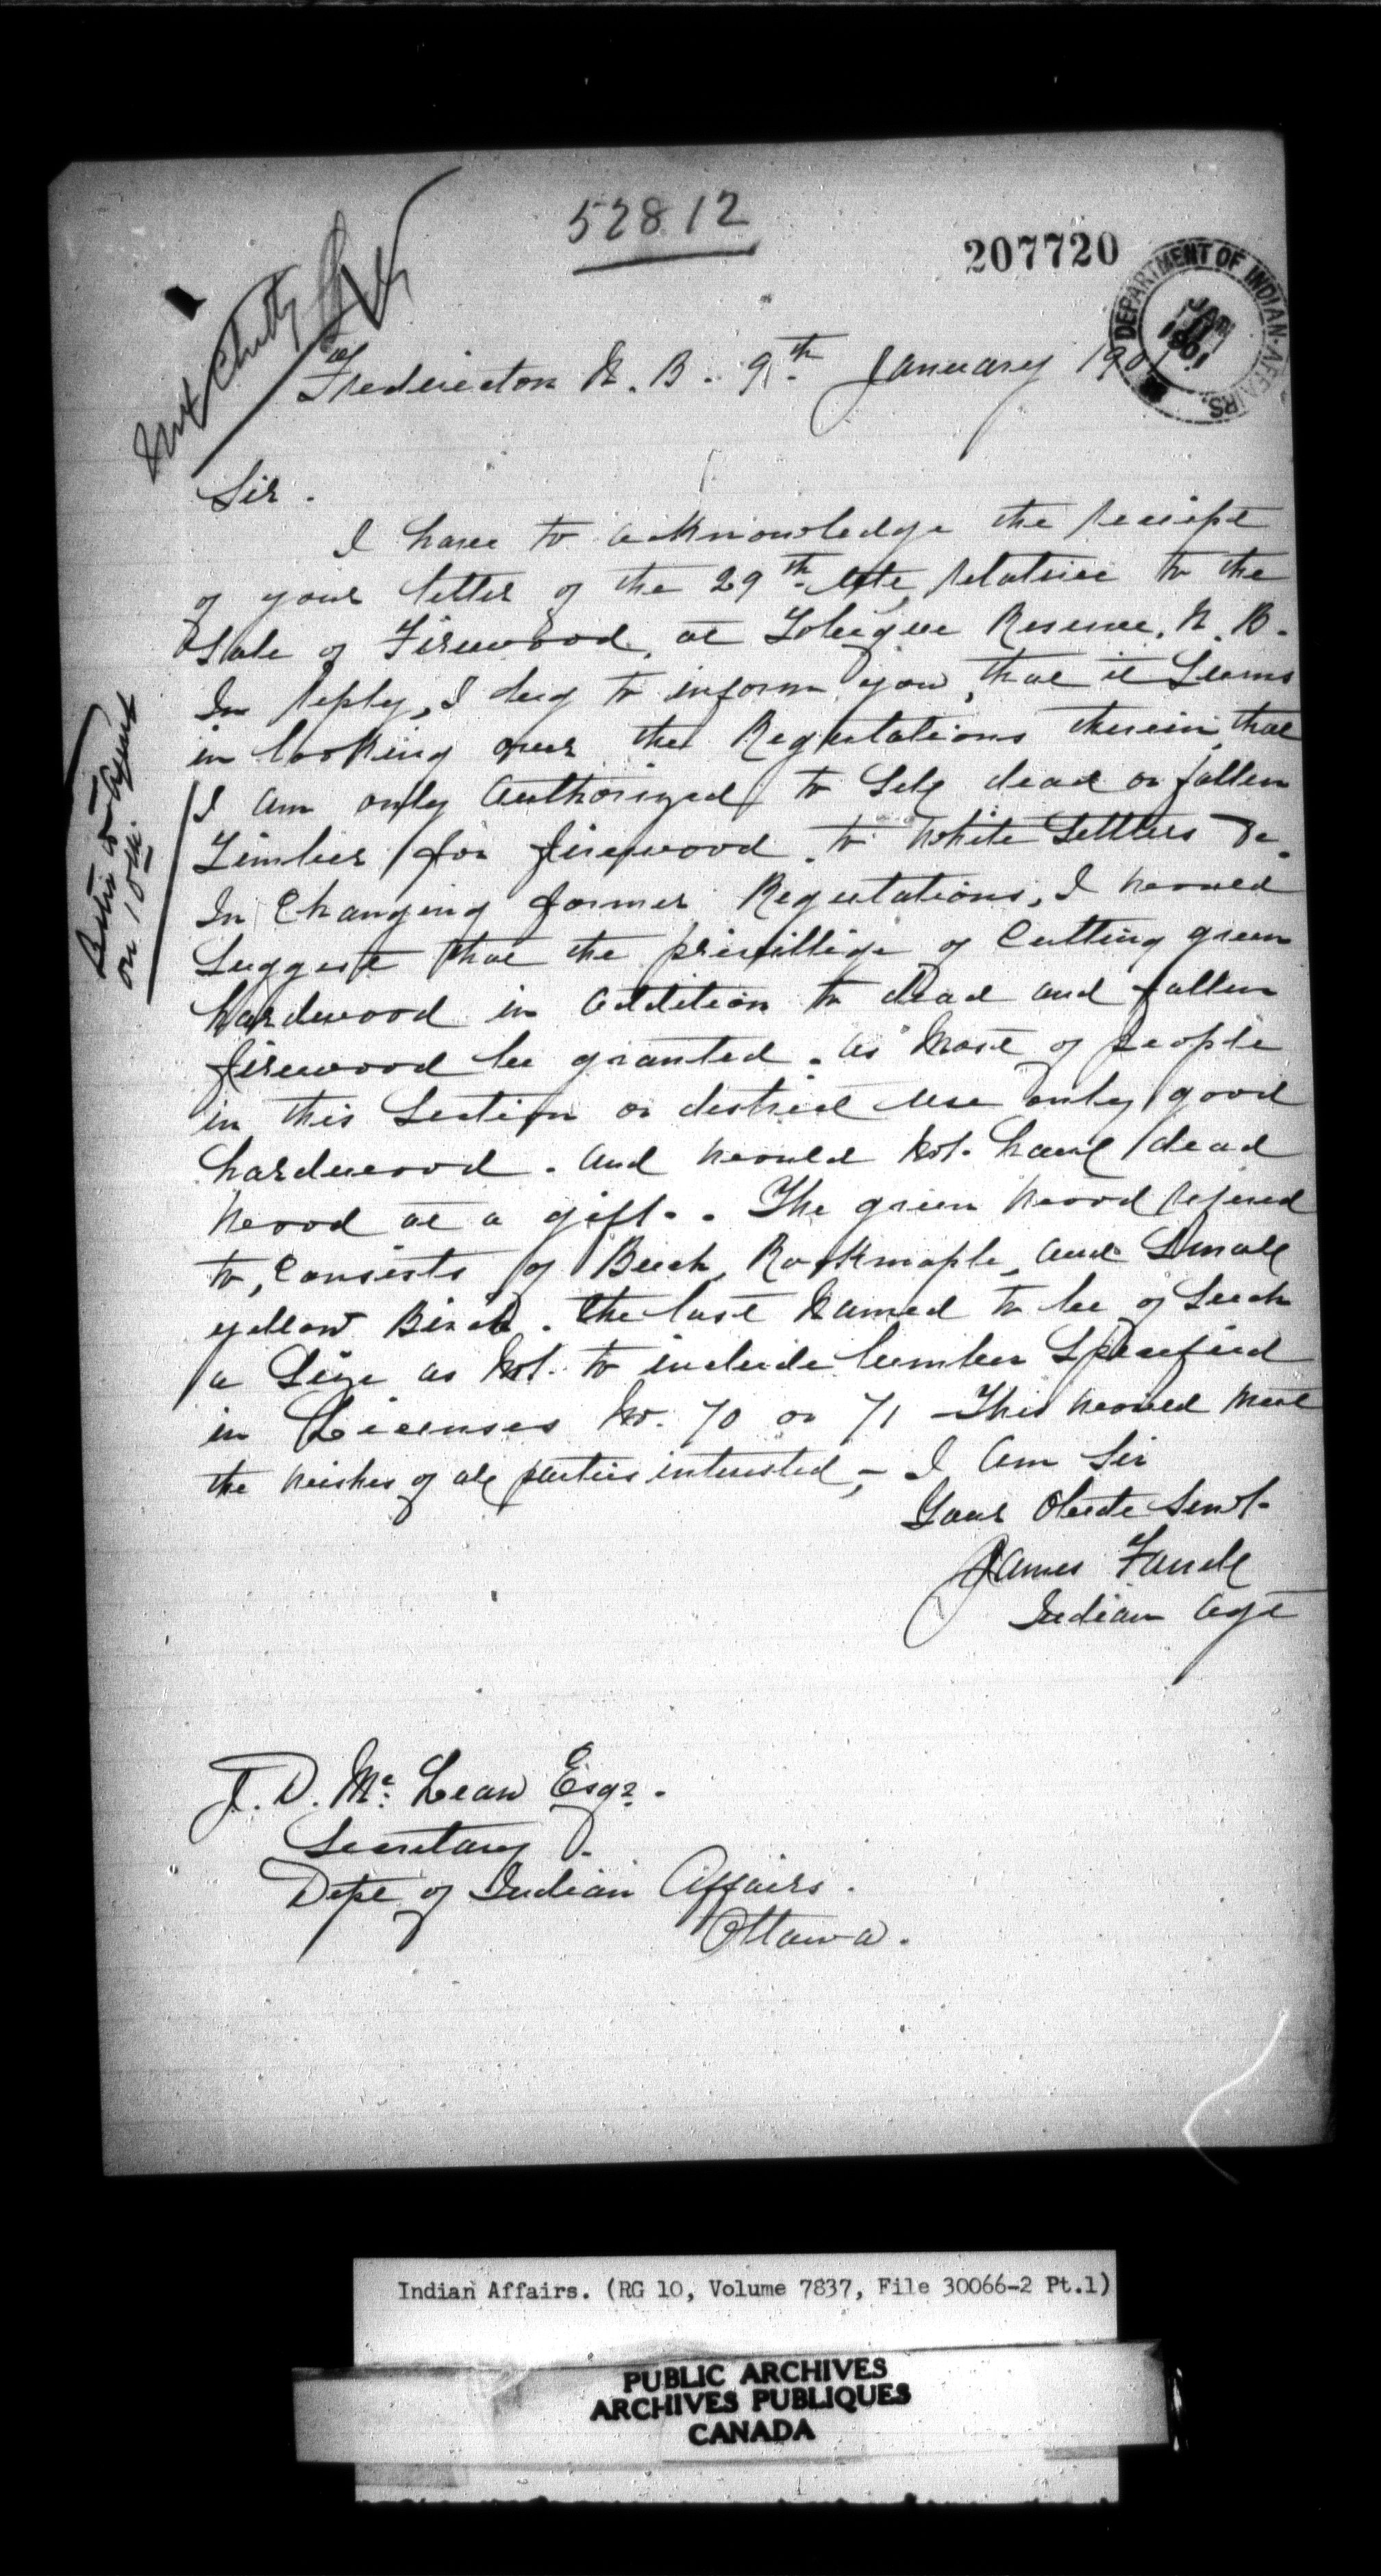 52812
207720
DEPARTMENT OF INDIAN AFFAIRS.
JAN
11
1901
Fredericton N. B. 9th January 1901
Sir.
I have to acknowledge the receipt
of your letter of the 29th ulto, relative to the
Sale of Firewood, at Tobique Reserve, N. B.
In reply, I beg to inform you, that it Seems
in looking over the Regulations therein, that
I am only Authorized to Sell dead or fallen
Timber for firewood to White Settlers &c.
In Changing former Regulations, I would
Suggest that the privillige of Cutting green
hardwood in addition to dead and fallen
firewood be granted. as most of people
in this Section or district use only good
hardwood. and would not. haul dead
wood at a gift.. The green wood refered
to, Consists of Beech, Rockmaple, and Small
yellow Birch. the last named to be of Such
a Size as not. to include lumber Specified
in Licenses No. 70 or 71 - This would meet
the wishes of all parties interested, - I Am Sir
Your Obedt Servt.
James Farrell
Indian Agt
Letter to Agent
on 10th.
J. D. Mc Lean Esqr.
Secretary.
Dept of Indian Affairs.
Ottawa.
Indian Affairs. (RG 10, Volume 7837, File 30066-2 Pt.1)
PUBLIC ARCHIVES
ARCHIVES PUBLIQUES
CANADA